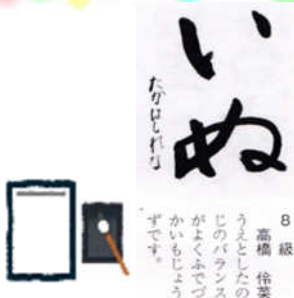 いぬ
たかはしれな
8級
高橋 伶菜
うえとしたの
じのバランス
がよくふでづ
かいもじょう
ずです。